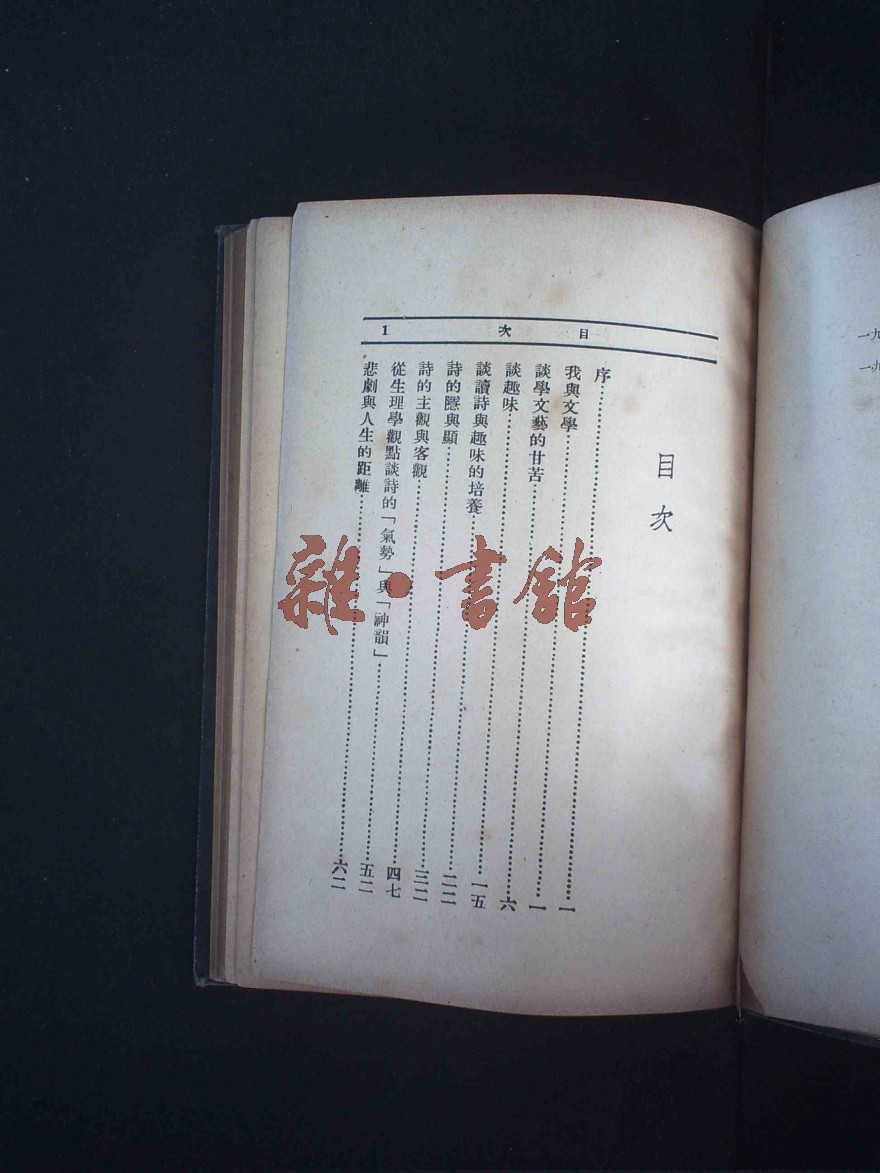 目次 1
目次
序……一
我與文學……一
談學文藝的甘苦……六
談趣味……一五
談讀詩與趣味的培養……二二
詩的隱與顯……三二
詩的主觀與客觀……四七
從生理學觀點談詩的「氣勢」與「神韻」……五二
悲劇與人生的距離……六二
雜·書館
一九
一九